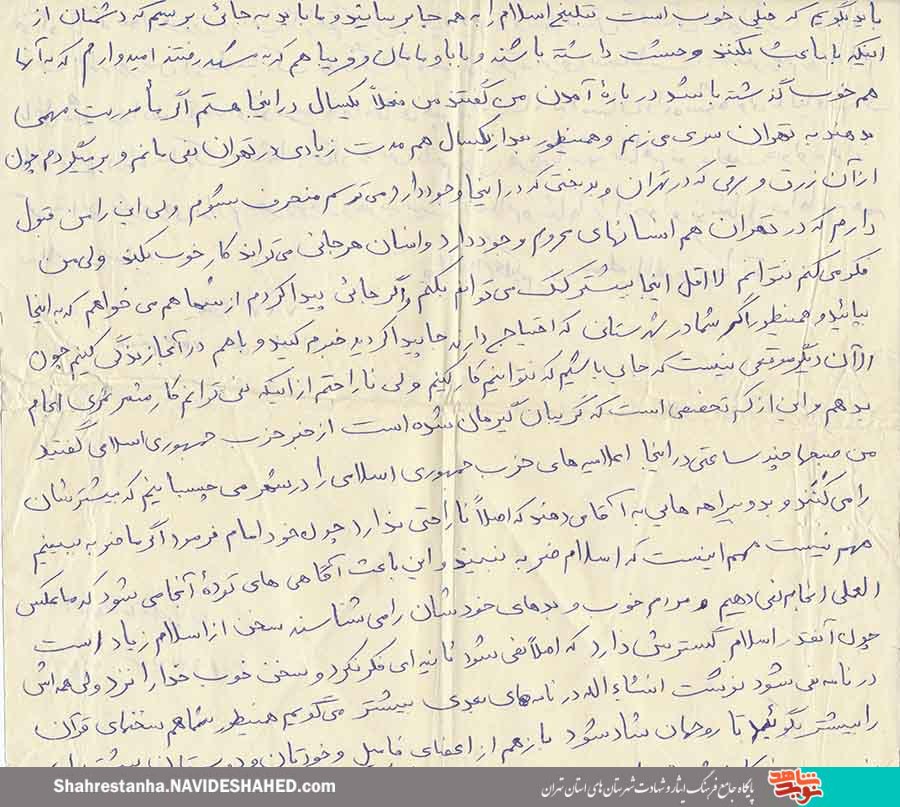 ما باید بگوییم که خیلی خوب است تبلیغ اسلام را به همه جا برسانید و ما باید به جائی برسیم که دشمنان از
اینکه با ما بحث بکنند وحشت داشته باشند و بابا و مامان و و پیبا هم که به مشهد رفتند امیدوارم که به آنها
هم خوب گذشته باشد درباره آمدن من گفتند من فعلاً یکسال در اینجا هستم اگر مأموریت مهمی
بدهند به تهران سری می زنم و همینطور بعد از یکسال هم مدت زیادی در تهران نمی مانم و بر میگردم چون
از آن زرق و برقی که در تهران و بدبختی که در اینجا وجود دارد می ترسم منحرف بشوم ولی این را من قبول
دارم که در تهران هم انسانهای محروم وجود دارد و انسان هر جائی می تواند کار خوب بکند ولی من
فکر می کنم نتوانم لااقل اینجا بیشتر کمک می توانم بکنم و اگر جائی پیدا کردم از شما هم می خواهم که به اینجا
بیائید و همینطور اگر شما در شهرستانی که احتیاج دارند جا پیدا کردید خبرم کنید و با هم در آنجا زندگی کنیم چون
الان دیگر موقعی نیست که جایی باشیم که نتوانیم کار کنیم ولی ناراحتم از اینکه نمی توانم کار مثمر ثمری انجام
بدهم و این از کم تخصصی است که گریبان گیرمان شده است از خبر حزب جمهوری اسلامی گفتید
من صبحها چند ساعتی در اینجا اعلامیه های حزب جمهوری اسلامی را در شهر می چسبانیم که بیشترشان
را می کَنند و بد و بیراهه هایی به آقا می دهند که اصلاً ناراحتی ندارد چون خود امام فرمود اگر ما ضربه ببینیم
مهم نیست مهم اینست که اسلام ضربه نبیند و این باعث آگاهی های توده آنجا می شود که ما عکس
العملی انجام نمی دهیم و مردم خوب و بدهای خودشان را می شناسند سخن از اسلام زیاد است
چون آنقدر اسلام گسترش دارد که اصلاً نمی شود ثانیه ای فکر نکرد و سخن خوب خدا را نزد ولی همه اش
در نامه نمی شود نوشت انشاءالله در نامه های بعدی بیشتر می گویم همینطور شما هم سخنهای قرآن
را بیشتر بگوئید تا روحمان شاد شود باز هم از اعضای فامیل و خودتان و دوستان
Shahrestanha.NAVIDESHAHED.com
پایگاه جامع فرهنگ ایثار و شهادت شهرستان های استان تهران
نوید شاهد